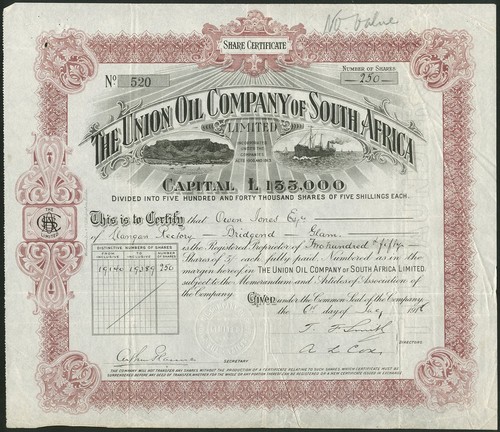 No Value
SHARE CERTIFICATE
No. 520
NUMBER OF SHARES
250
THE UNION OIL COMPANY OF SOUTH AFRICA
LIMITED
INCORPORATED
COMPANIES
CAPITAL £ 135.000
DIVIDED INTO FIVE HUNDRED AND FORTY THOUSAND SHARES OF FIVE SHILLINGS EACH.
This is to Certify that Owen Jones Esqre
of Llangan Rectory Bridgend Glam.
DISTINCTIVE NUMBERS OF SHARES
FROM INCLUSIVE TO INCLUSIVE TOTAL
19140 19389 250
is the Registered Proprietor of Two hundred & fifty
Shares of 5/ each fully paid. Numbered as in the
margin hereof in THE UNION OIL COMPANY OF SOUTH AFRICA LIMITED.
subject to the Memorandum and Articles of Association of
the Company.
Given under the Common Seal of the Company
the 6th day of
A L Cox
SECRETARY.
THE COMPANY WILL NOT TRANSFER ANY SHARES WITHOUT THE PRODUCTION OF A CERTIFICATE RELATING TO SUCH SHARES, WHICH CERTIFICATE MUST BE
SURRENDERED BEFORE ANY DEED OF TRANSFER WHETHER FOR THE WHOLE OR ANY PORTION THEREOF CAN BE REGISTERED OR A NEW CERTIFICATE ISSUED IN EXCHANGE.